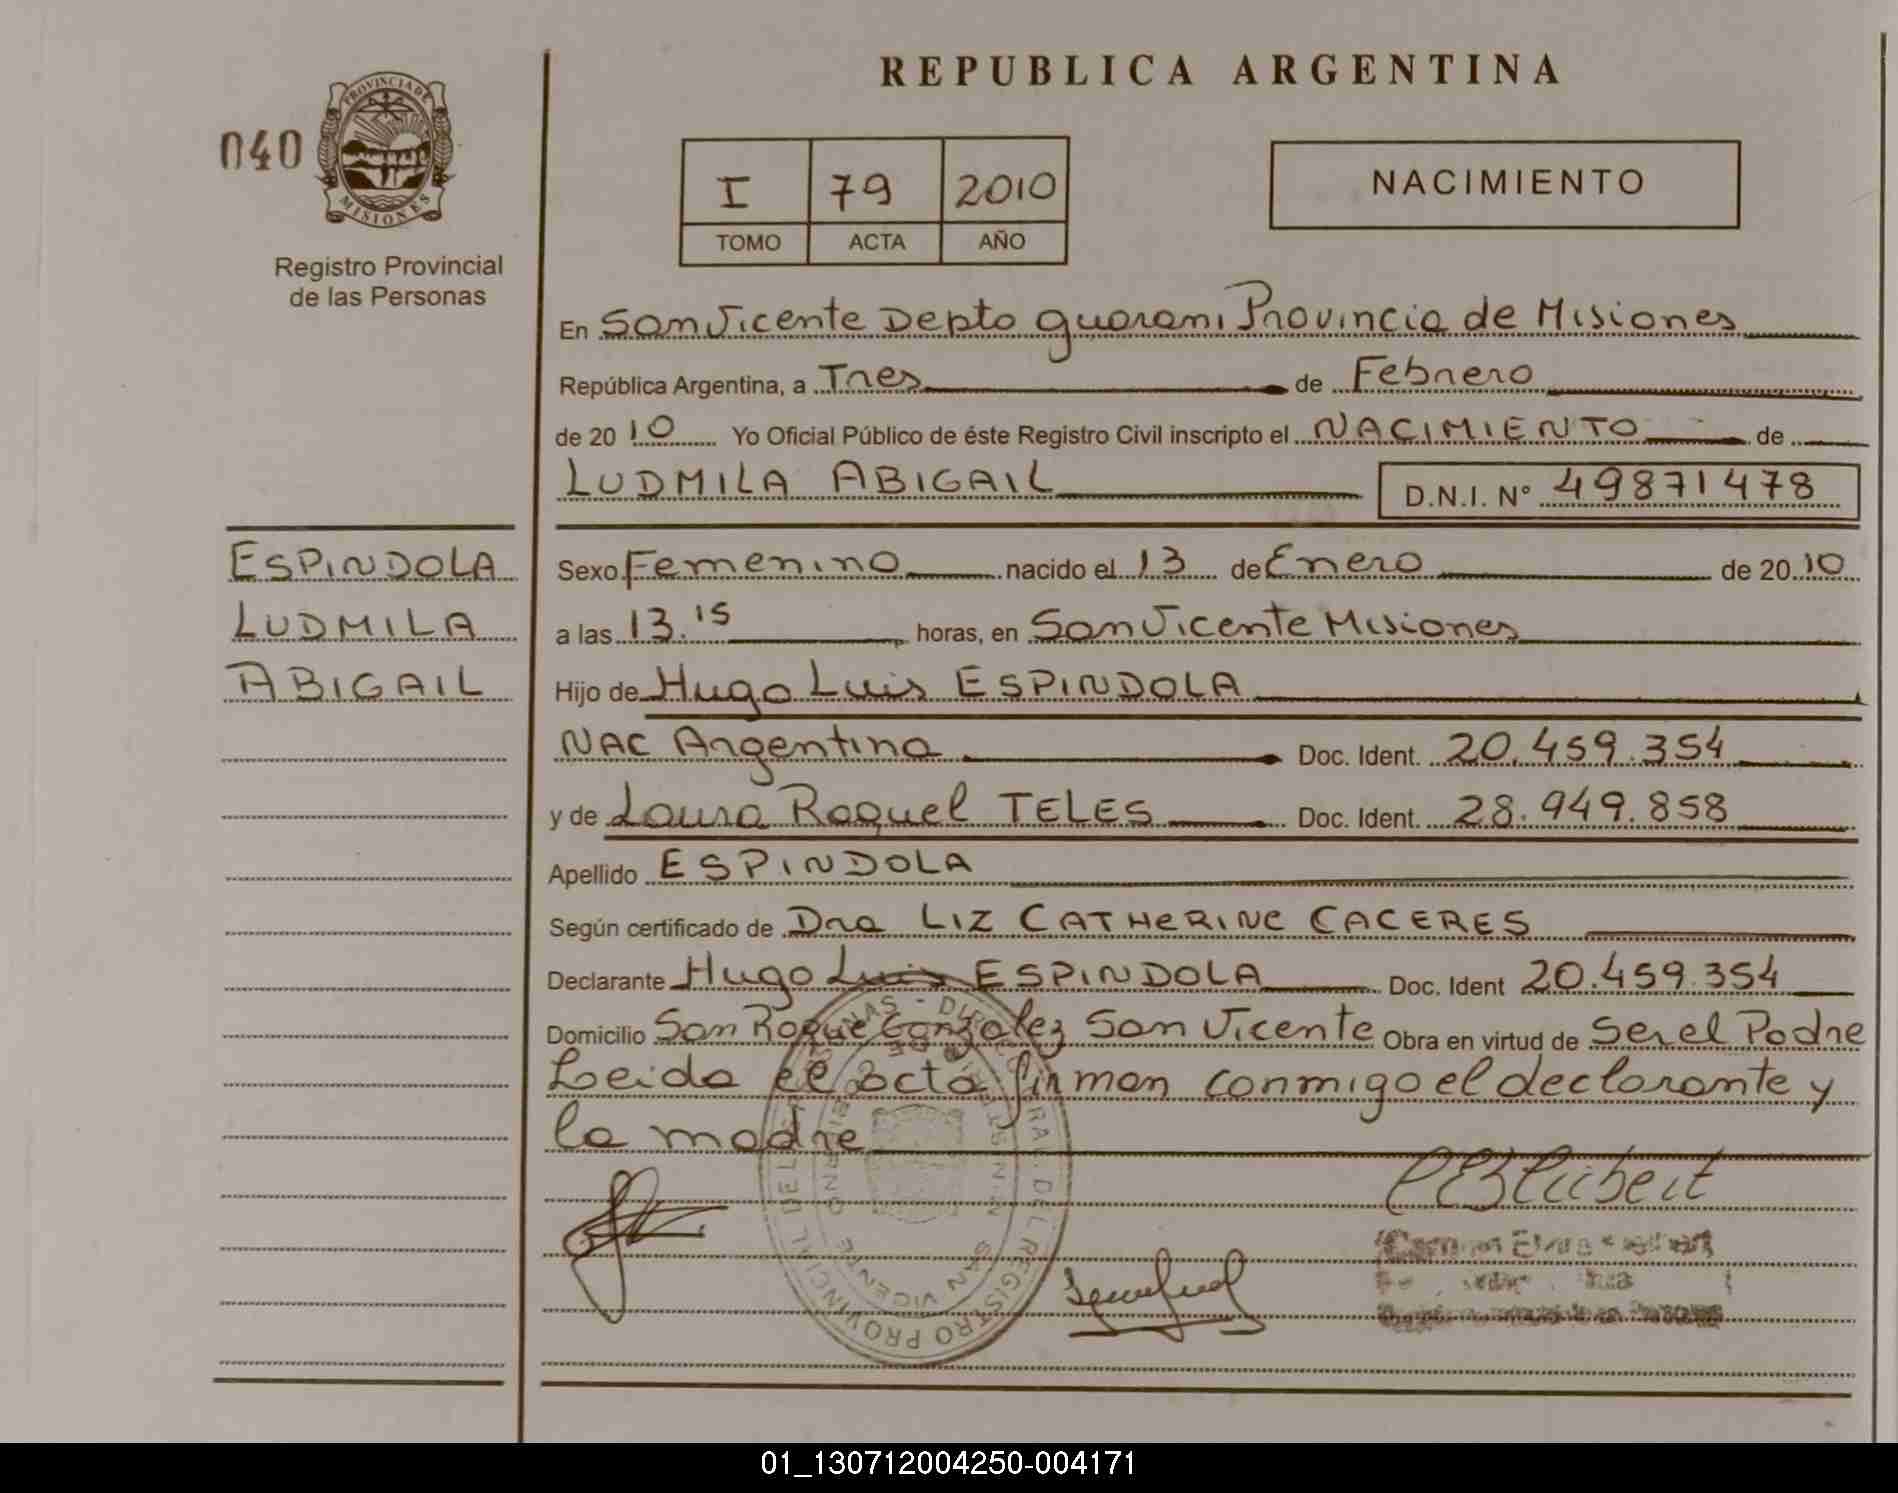 REPUBLICA ARGENTINA
040
PROVINCIA DE
MISIONES
Registro Provincial
de las Personas
I 79 2010
TOMO ACTA AÑO
NACIMIENTO
En San Vicente Depto guarani Provincia de Misiones
República Argentina, a Tres de Febrero
de 2010 Yo Oficial Público de éste Registro Civil inscripto el NACIMIENTO de
LUDMILA ABIGAIL D.N.I. Nº 49871478
ESPINDOLA
LUDMILA
ABIGAIL
Sexo Femenino nacido el 13 de Enero de 2010
a las 13.15 horas, en San Vicente Misiones
Hijo de Hugo Luis ESPINDOLA
NAC Argentina Doc. Ident. 20.459.354
y de Laura Raquel TELES Doc. Ident. 28.949.858
Apellido ESPINDOLA
Según certificado de Dra LIZ CATHERINE CACERES
Declarante Hugo Luis ESPINDOLA Doc. Ident 20.459.354
Domicilio San Roque Gonzalez San Vicente Obra en virtud de Ser el Padre
Leida el acta firman conmigo el declarante y
la madre
SAN VICENTE
REGISTRO PROVINCIAL DE
01_130712004250-004171